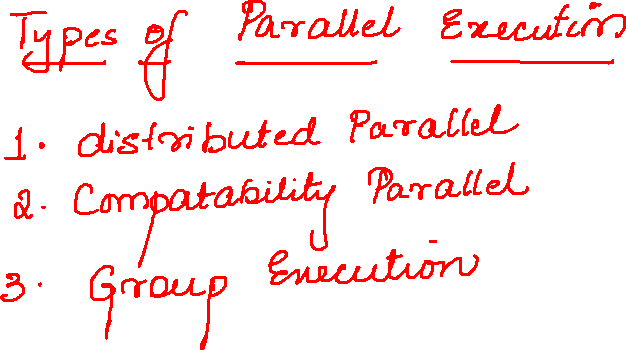 Types of Parallel Execution
1. distributed Parallel
2. Compatability Parallel
3. Group Execution